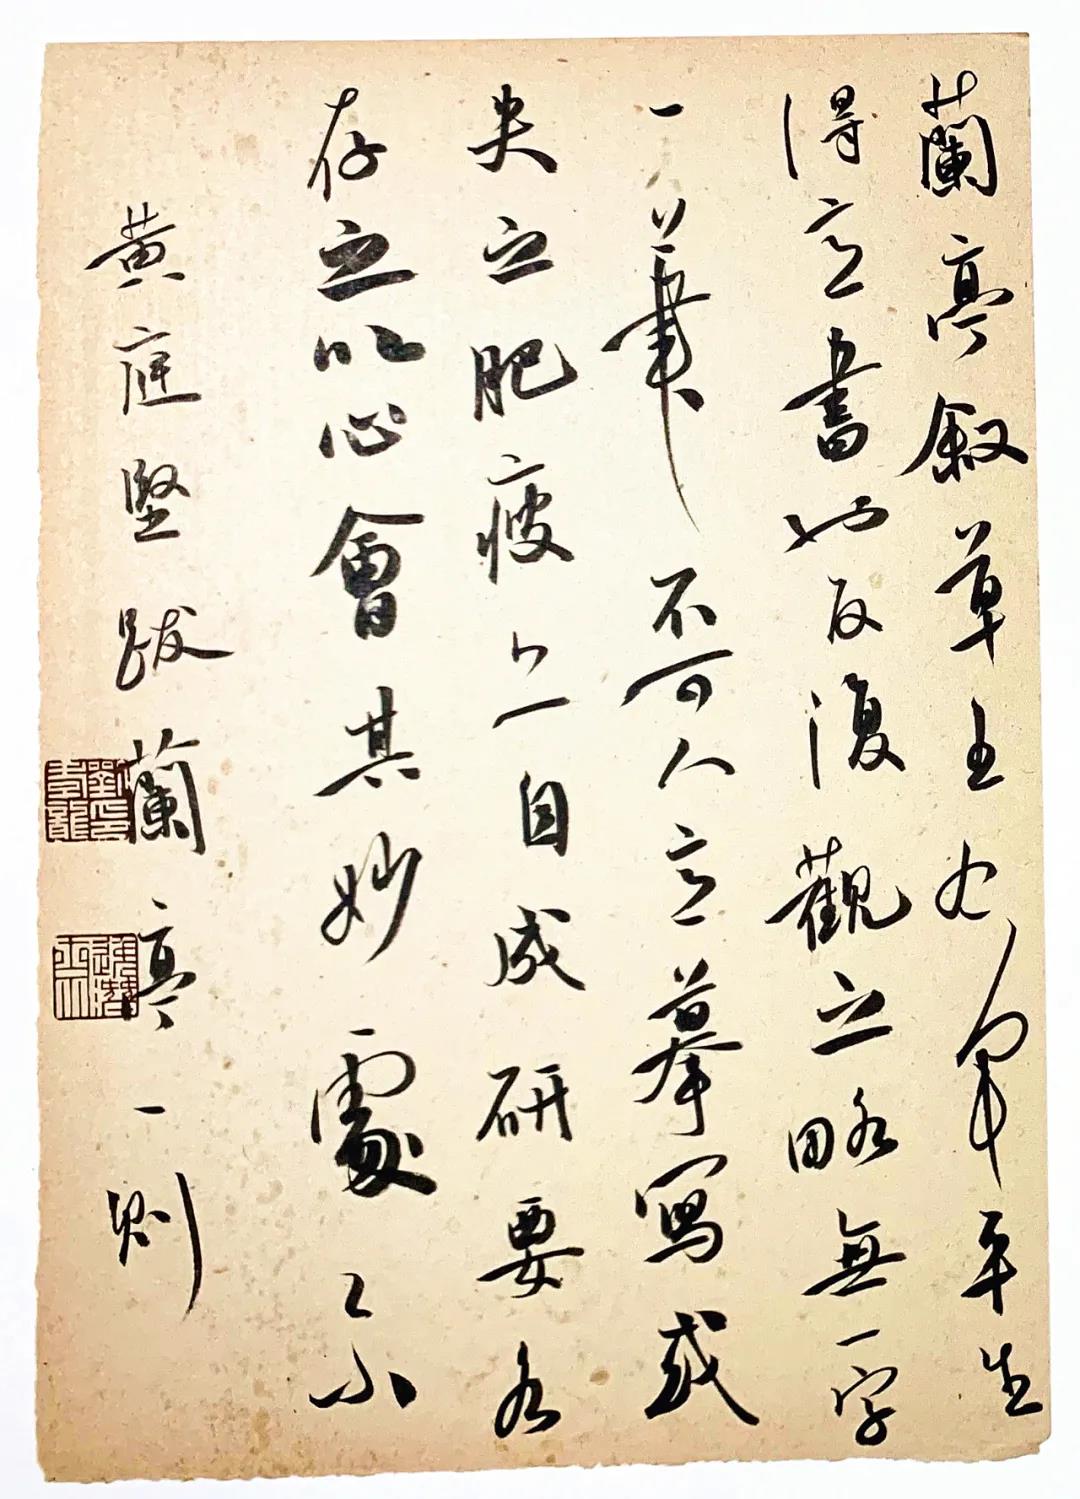 蘭亭敘草王右軍平生
得意書也反復觀之略無一字
一筆不可人意摹寫或
失之肥瘦亦自成研要各
存之以心會其妙處尒
黃庭堅跋蘭亭一則